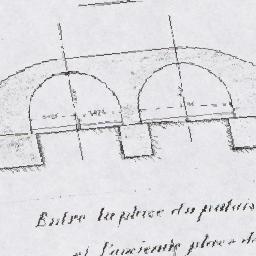 Entre la place du palais
et l'ancienne place d